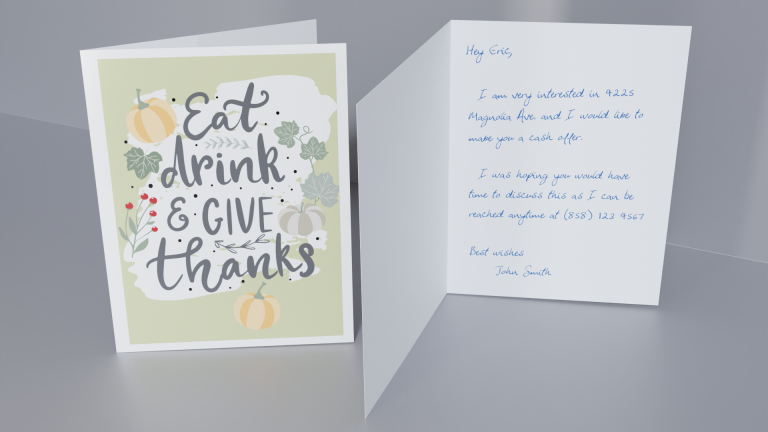 Eat
drink
& GIVE
thanks
Hey Eric,
I am very interested in 4225
Magnolia Ave. and I would like to
make you a cash offer.
I was hoping you would have
time to discuss this as I can be
reached anytime at (858) 123 4567
Best wishes
John Smith